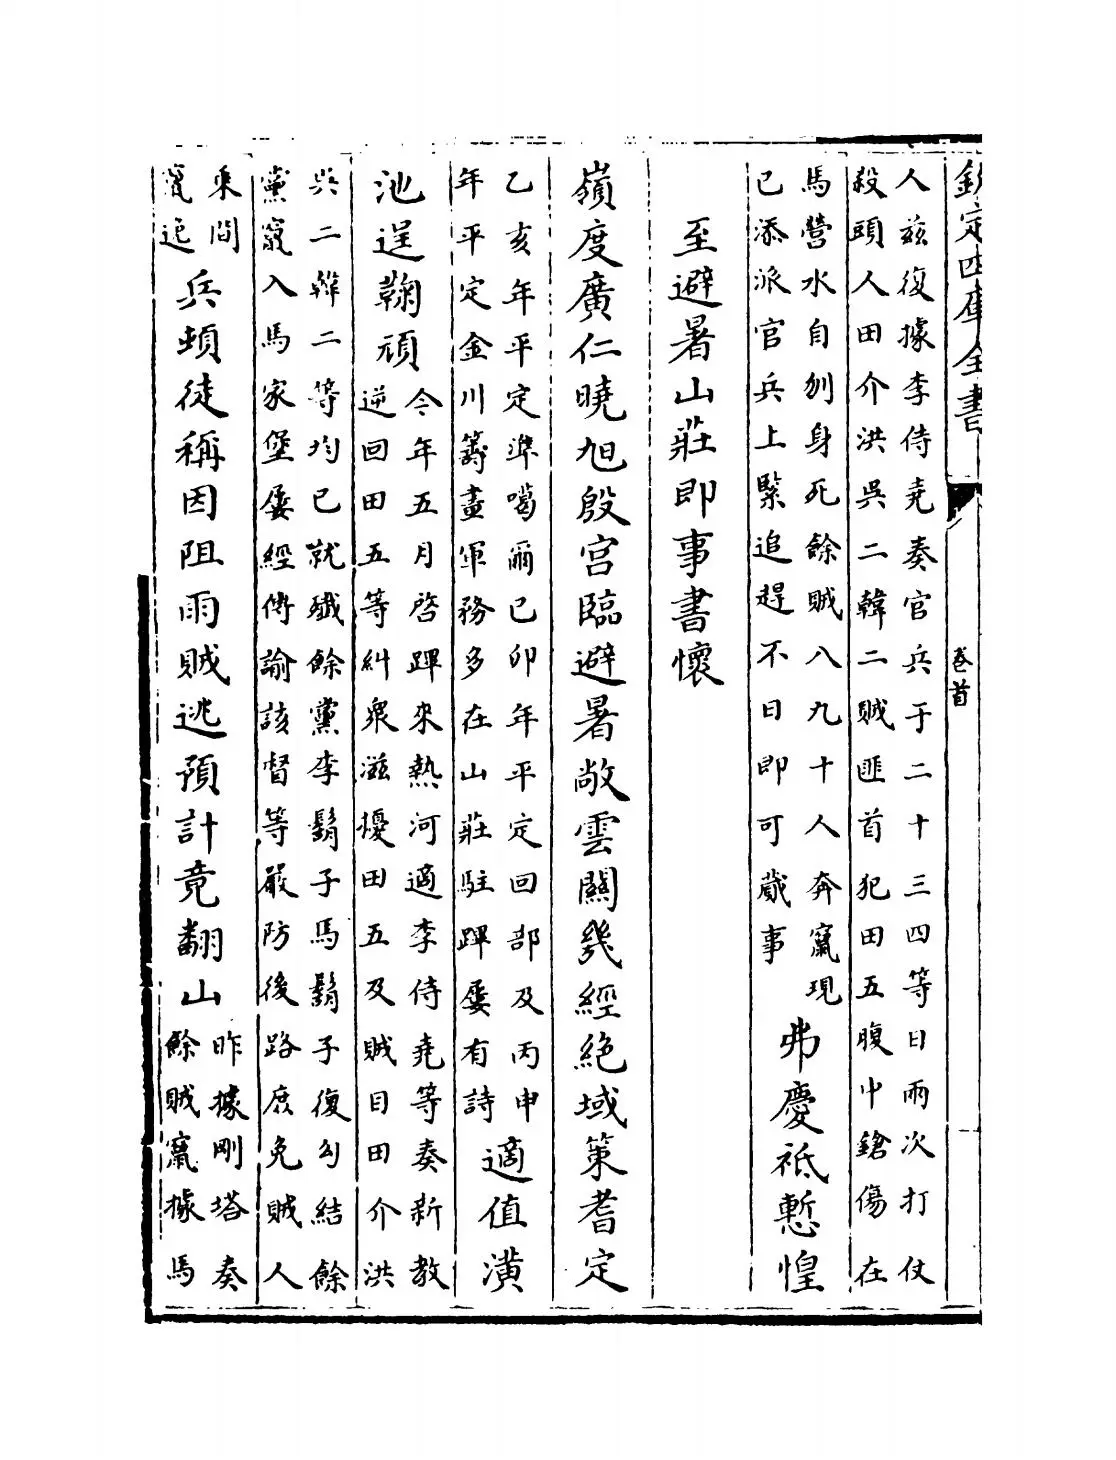 欽定四庫全書
卷首
人茲復據李侍堯奏官兵于二十三四等日兩次打仗
殺頭人田介洪吳二韓二賊匪首犯田五腹中鎗傷在
馬營水自刎身死餘賊八九十人奔竄現
已添派官兵上緊追趕不日即可蕆事
弗慶祗慙惶
至避暑山莊即事書懷
嶺度廣仁曉旭殷宮臨避暑敞雲關幾經絕域策耆定
乙亥年平定準噶爾己卯年平定回部及丙申
年平定金川籌畫軍務多在山莊駐蹕屢有詩
適值潢
池逞鞠頑
今年五月啓蹕來熱河適李侍堯等奏新教
逆回田五等糾衆滋擾田五及賊目田介洪
吳二韓二等均已就殲餘黨李鬍子馬鬍子復勾結餘
黨竄入馬家堡屢經傳諭該督等嚴防後路庶免賊人
乘間
竄逸
兵頓徒稱因阻雨賊逃預計竟翻山
昨據剛塔奏
餘賊竄據馬